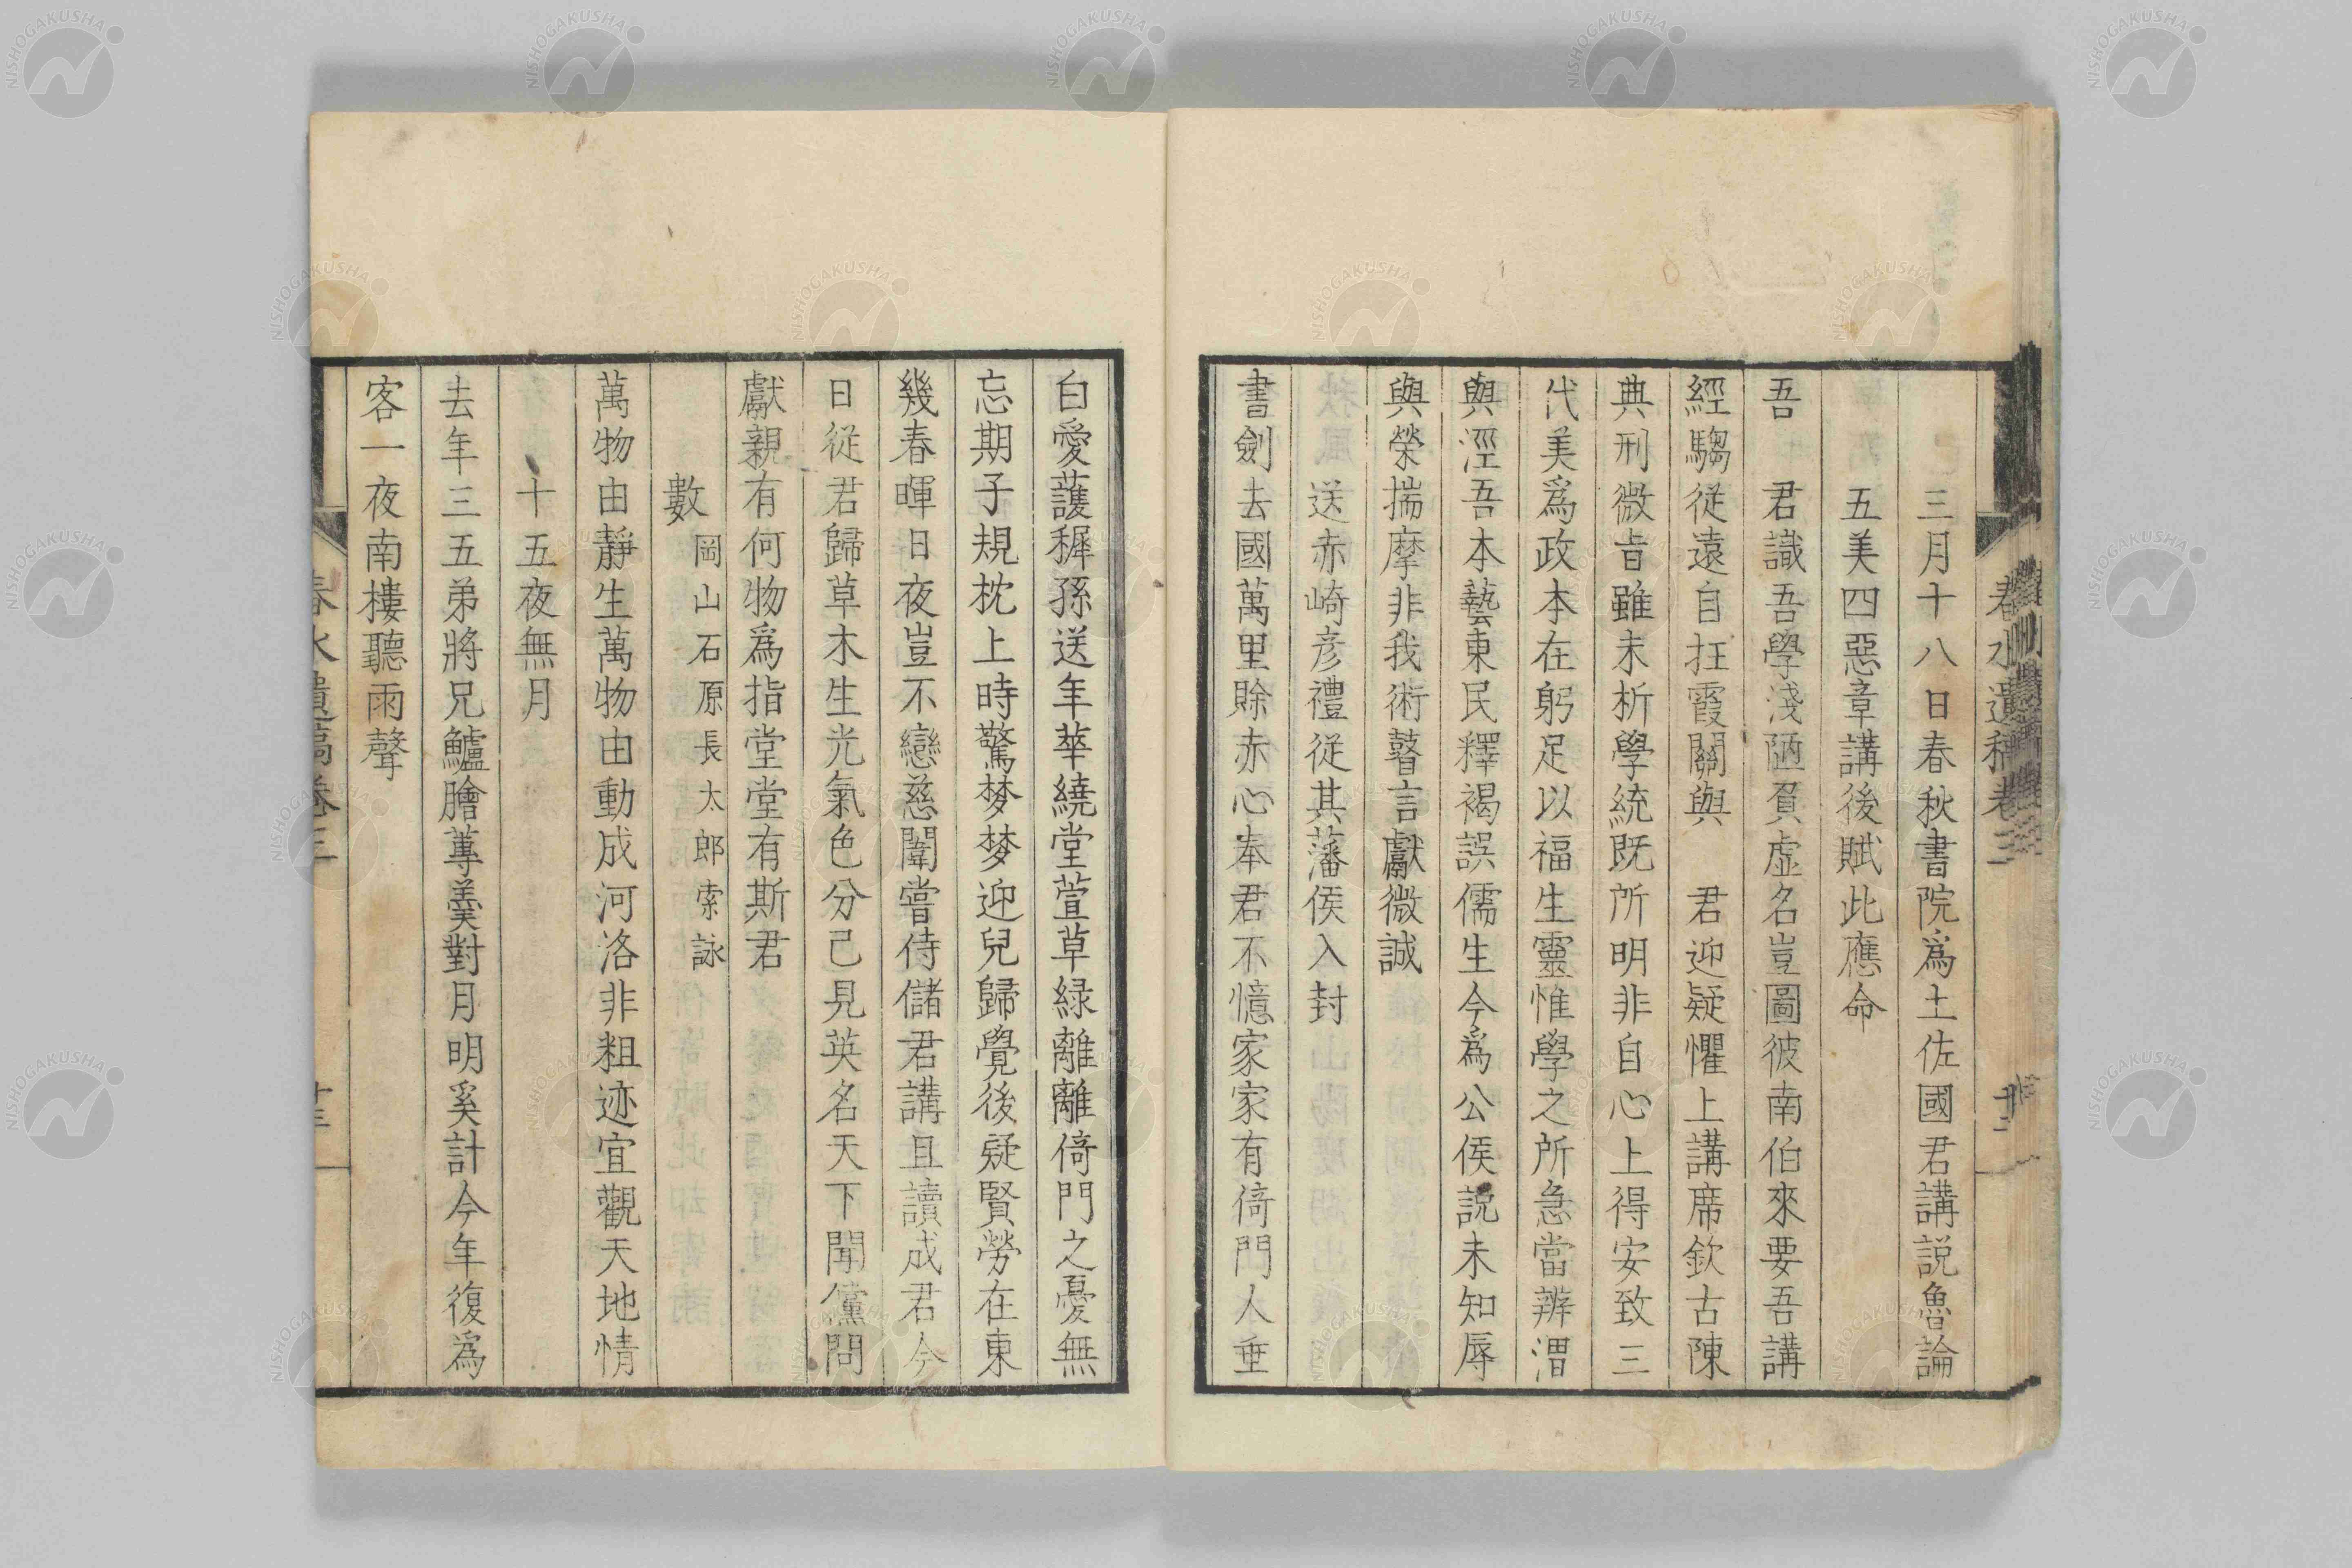 三月十八日春秋書院爲土佐國君講説魯論
五美四惡章講後賦此應命
吾　君識吾學淺陋負虛名豈圖彼南伯來要吾講
經騶從遠自抂霞關與　君迎疑懼上講席欽古陳
典刑微旨雖未析學統既所明非自心上得安致三
代美爲政本在躬足以福生靈惟學之所急當辨渭
與涇吾本藝東民釋褐誤儒生今爲公侯説未知辱
與榮揣摩非我術瞽言獻微誠
送赤崎彦禮從其藩侯入封
書劍去國萬里賒赤心奉君不憶家家有倚門人垂
白愛護穉孫送年華繞堂萱草緑離離倚門之憂無
忘期子規枕上時驚梦梦迎兒歸覺後疑賢勞在東
幾春暉日夜豈不戀慈闈嘗侍儲君講且讀成君今
日從君歸草木生光氣色分已見英名天下聞儻問
獻親有何物爲指堂堂有斯君
數 岡山石原長太郎索詠
萬物由靜生萬物由動成河洛非粗迹宜觀天地情
十五夜無月
去年三五弟將兄鱸膾蓴羹對月明奚計今年復爲
客一夜南樓聽雨聲
春水遺稿卷三
春水遺稿卷三
NISHOGAKUSHA